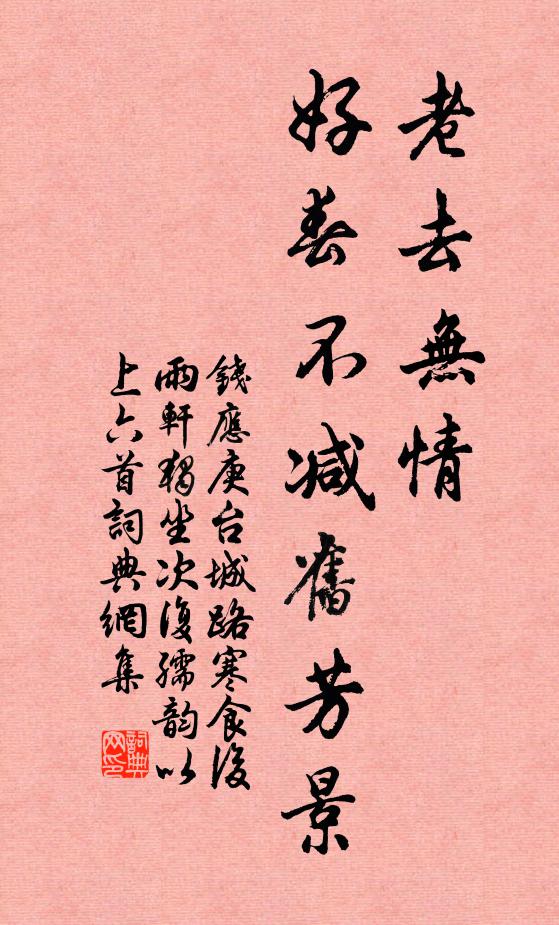 老去無情
好春不減舊芳景
錢應庚台城路寒食後
雨軒獨坐次復孺韵以
上六首詞典網集
詞典
网印